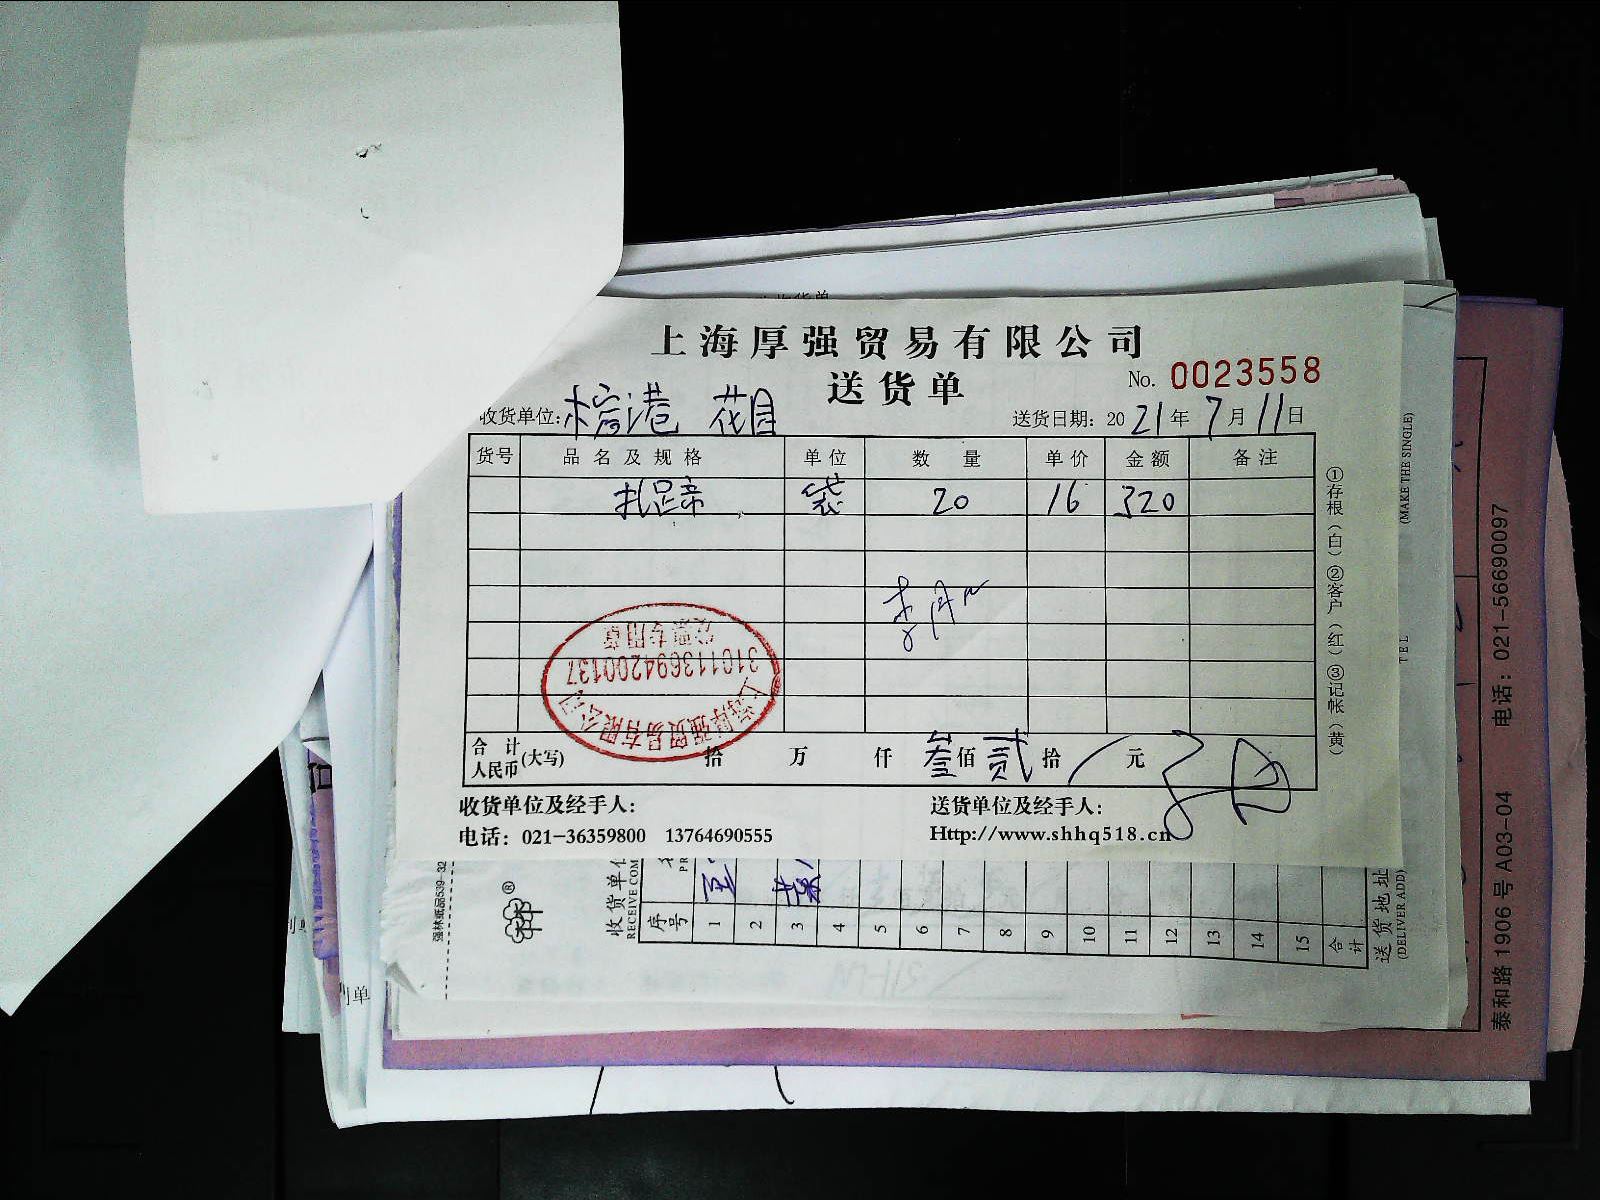 上海厚强贸易有限公司
送货单
No. 0023558
收货单位: 港 花园
送货日期: 2021年7月11日
货号 品名及规格 单位 数量 单价 金额 备注
袋 20 16 320
合计人民币(大写) 拾 万 仟 叁佰 贰拾 / 元
收货单位及经手人:
送货单位及经手人:
电话: 021-36359800 13764690555
Http://www.shhq518.cn
①存根(白)②客户(红)③记帐(黄)
上海厚强贸易有限公司
310113694200137
发票专用章
(MAKE THE SINGLE)
TEL
电话: 021-56690097
泰和路 1906 号 A03-04
强林纸品539-32
收货单位
RECEIVE COM
序号 1 2 3 4 5 6 7 8 9 10 11 12 13 14 15 合计
送货地址
(DELIVER ADD)